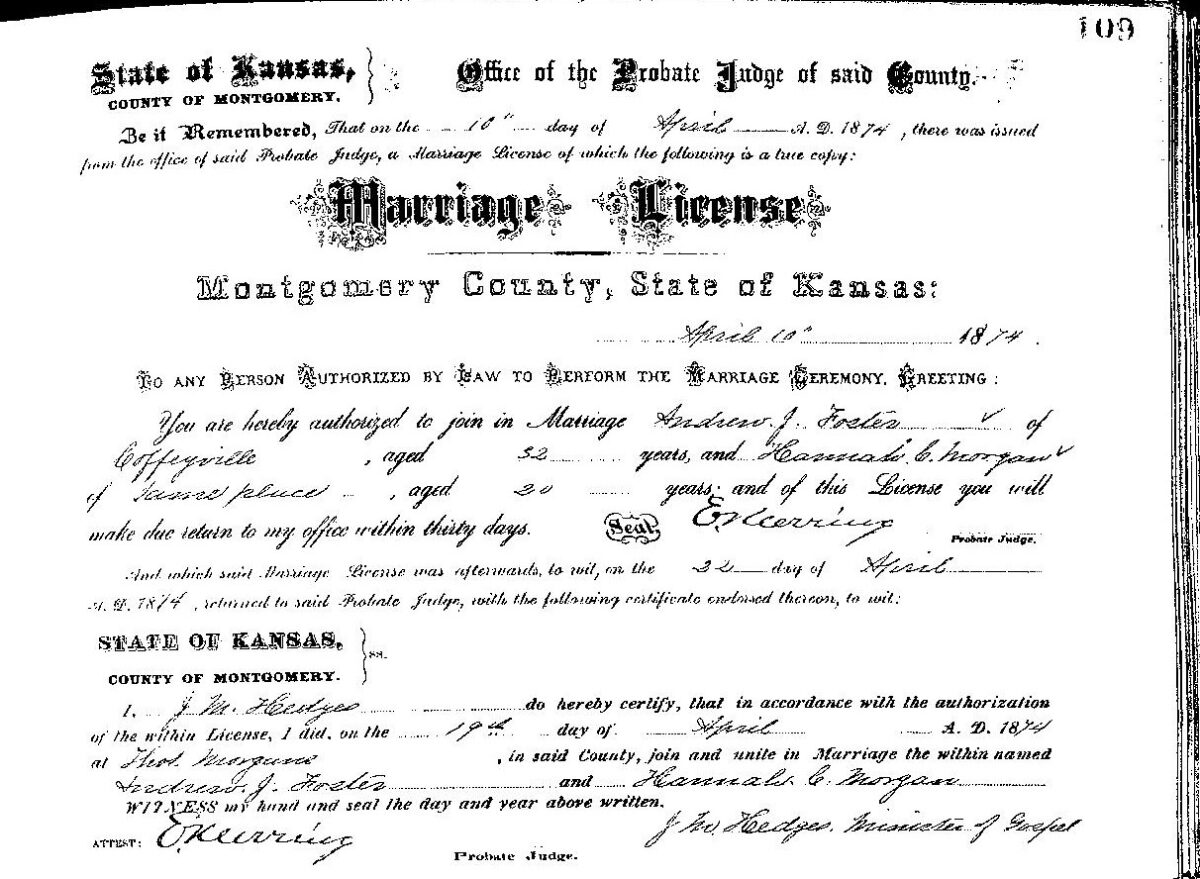 109
State of Kansas, Office of the Probate Judge of said County.
COUNTY OF MONTGOMERY.
Be it Remembered, That on the 10" day of April A. D. 1874, there was issued
from the office of said Probate Judge, a Marriage License of which the following is a true copy:
Marriage License
Montgomery County, State of Kansas:
April 10" 1874.
TO ANY PERSON AUTHORIZED BY LAW TO PERFORM THE MARRIAGE CEREMONY, GREETING:
You are hereby authorized to join in Marriage Andrew J. Foster of
Coffeyville, aged 32 years, and Hannah C. Morgan
of same place, aged 20 years; and of this License you will
make due return to my office within thirty days. Seal E Herring
Probate Judge.
And which said Marriage License was afterwards, to wit, on the 22 day of April
A. D. 1874, returned to said Probate Judge, with the following certificate endorsed thereon, to wit:
STATE OF KANSAS,
ss.
COUNTY OF MONTGOMERY.
I, J M. Hedges do hereby certify, that in accordance with the authorization
of the within License, I did, on the 19th day of April A. D. 1874
at Theo. Morgans, in said County, join and unite in Marriage the within named
Andrew J. Foster and Hannah C. Morgan
WITNESS my hand and seal the day and year above written.
J M. Hedges. Minister of Gospel
ATTEST: E Herring
Probate Judge.